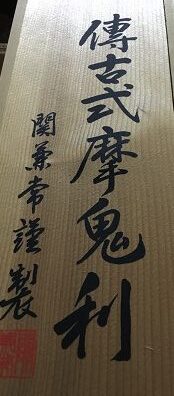 傳古式摩鬼利
関兼常謹製